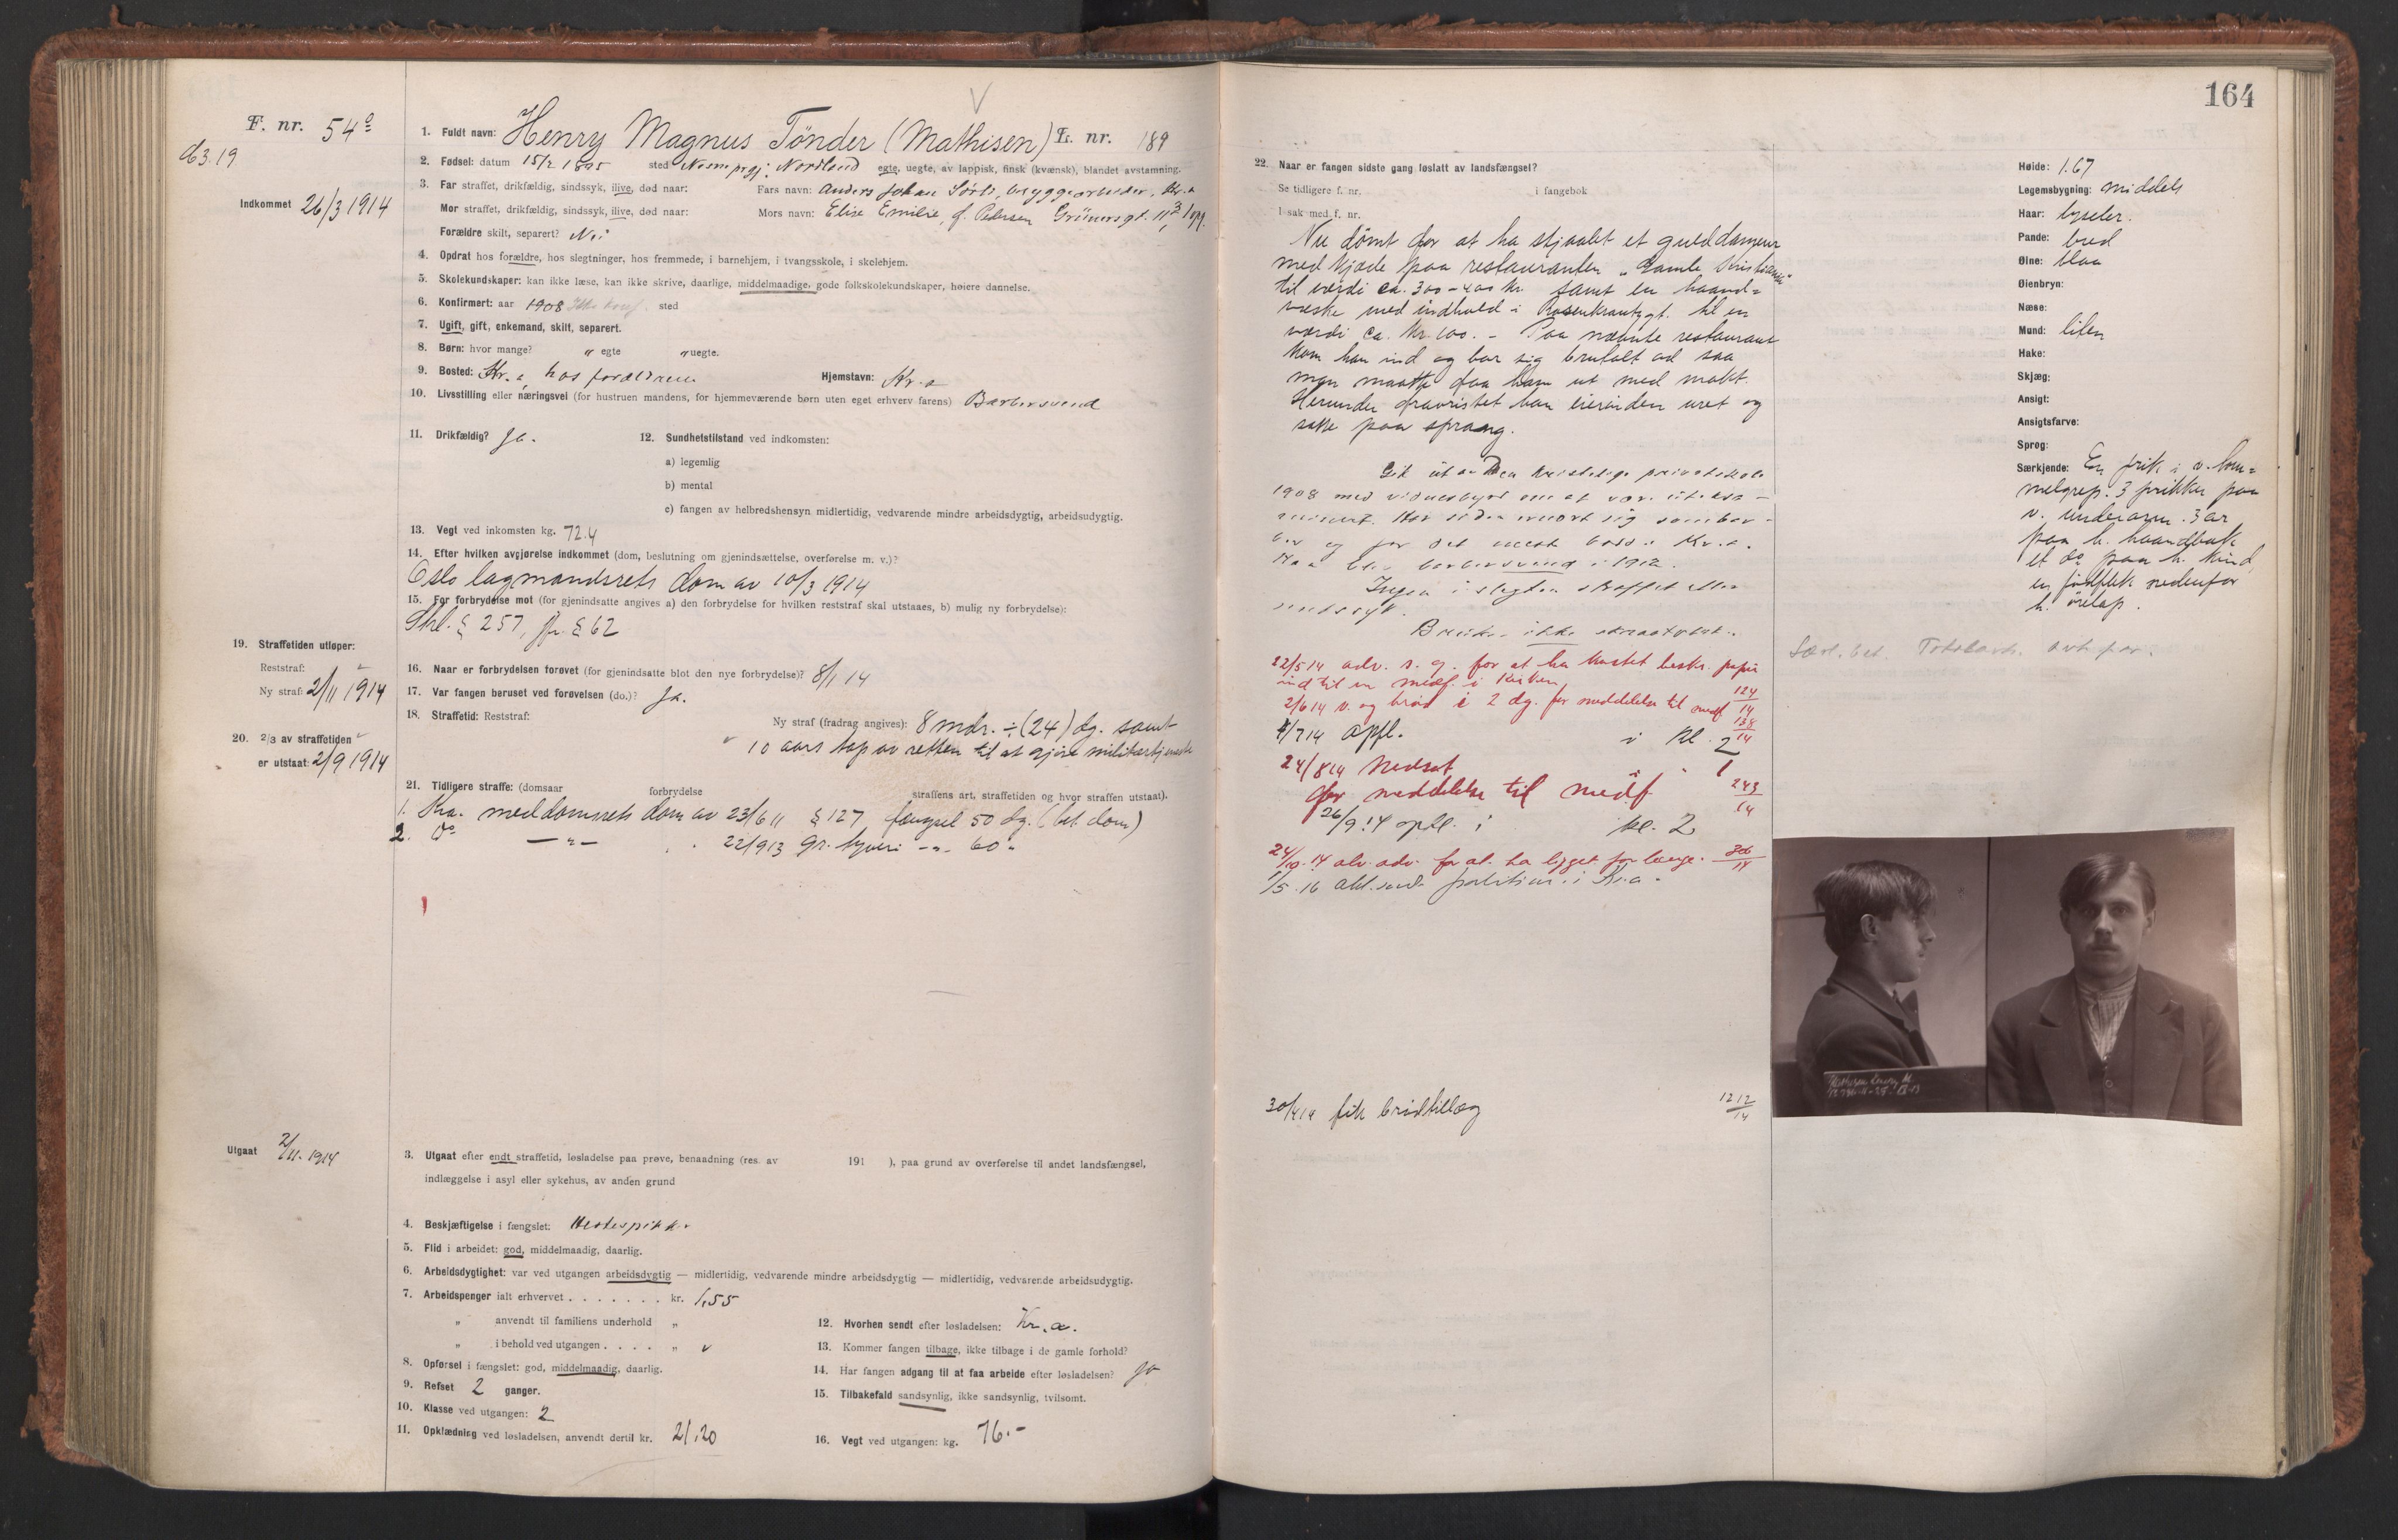 F. nr. 54
d63.19
Indkommet 26/3 1914
1. Fuldt navn: Henry Magnus Tönder (Mathisen) L. nr. 189
2. Fødsel: datum 15/2 1895 sted Nesne prgj. Nordland egte, uegte, av lappisk, finsk (kvænsk), blandet avstamning.
3. Far straffet, drikfældig, sindssyk, ilive, død naar: Fars navn: Anders Johan bryggearbeider, Kr.a
Mor straffet, drikfældig, sindssyk, ilive, død naar: Mors navn: Elise Emilie, f. Pedersen Grünersgt. 11
Forældre skilt, separert? Nei
4. Opdrat hos forældre, hos slegtninger, hos fremmede, i barnehjem, i tvangsskole, i skolehjem.
5. Skolekundskaper: kan ikke læse, kan ikke skrive, daarlige, middelmaadige, gode folkskolekundskaper, høiere dannelse.
6. Konfirmert: aar 1908 Ikke konf. sted
7. Ugift, gift, enkemand, skilt, separert.
8. Børn: hvor mange? " egte " uegte.
9. Bosted: Kr.a, hos forældrene Hjemstavn: Kr.a
10. Livsstilling eller næringsvei (for hustruen mandens, for hjemmeværende børn uten eget erhverv farens) Barbersvend
11. Drikfældig? Ja. 12. Sundhetstilstand ved indkomsten:
a) legemlig
b) mental
c) fangen av helbredshensyn midlertidig, vedvarende mindre arbeidsdygtig, arbeidsudygtig.
13. Vegt ved inkomsten kg. 72.4
14. Efter hvilken avgjørelse indkommet (dom, beslutning om gjenindsættelse, overførelse m. v.)?
Oslo lagmandsrets dom av 10/3 1914
15. For forbrydelse mot (for gjenindsatte angives a) den forbrydelse for hvilken reststraf skal utstaaes, b) mulig ny forbrydelse):
Strl. § 257, jfr. § 62
19. Straffetiden utløper:
Reststraf:
Ny straf: 2/11 1914
16. Naar er forbrydelsen forøvet (for gjenindsatte blot den nye forbrydelse)? 8/1 14
17. Var fangen beruset ved forøvelsen (do.)? Ja.
18. Straffetid: Reststraf: Ny straf (fradrag angives): 8 mdr. ÷ (24) dg. samt
10 aars tap av retten til at gjøre militærtjeneste
20. 2/3 av straffetiden
er utstaat: 2/9 1914
21. Tidligere straffe: (domsaar forbrydelse straffens art, straffetiden og hvor straffen utstaat).
1. Kra. meddomsrets dom av 23/6 11 § 127 fængsel 50 dg. (bet. dom)
2. do —"— 22/9 13 gr. tyveri —"— 60 "
Utgaat 2/11. 1914
3. Utgaat efter endt straffetid, løsladelse paa prøve, benaadning (res. av 191 ), paa grund av overførelse til andet landsfængsel,
indlæggelse i asyl eller sykehus, av anden grund
4. Beskjæftigelse i fængslet: Hestespikker
5. Flid i arbeidet: god, middelmaadig, daarlig.
6. Arbeidsdygtighet: var ved utgangen arbeidsdygtig — midlertidig, vedvarende mindre arbeidsdygtig — midlertidig, vedvarende arbeidsudygtig.
7. Arbeidspenger ialt erhvervet . . . . . . . kr. 1,55
" anvendt til familiens underhold "
" i behold ved utgangen . . . . "
8. Opførsel i fængslet: god, middelmaadig, daarlig.
9. Refset 2 ganger.
10. Klasse ved utgangen: 2
11. Opklædning ved løsladelsen, anvendt dertil kr. 21,20
12. Hvorhen sendt efter løsladelsen: Kr.a.
13. Kommer fangen tilbage, ikke tilbage i de gamle forhold?
14. Har fangen adgang til at faa arbeide efter løsladelsen? ja
15. Tilbakefald sandsynlig, ikke sandsynlig, tvilsomt.
16. Vegt ved utgangen: kg. 76.-
164
22. Naar er fangen sidste gang løslatt av landsfængsel?
Se tidligere f. nr. i fangebok
I sak med f. nr.
Nu dömt for at ha stjaalet et gulddameur
med kjæde paa restauranten "Gamle Kristiania"
til værdi ca. 300-400 kr. samt en haand-
væske med indhold i Rosenkrantzgt. til en
værdi ca. kr. 100. - Paa nævnte restaurant
kom han ind og bar sig brutalt ad saa
man maatte faa ham ut med makt.
Herunder fravristet han eierinden uret og
satte paa sprang.
Gik ut av Den kristelige privatskole
1908 med vidnesbyrd om at være uteksa-
minert. Har siden ernært sig som bar-
ber og for det meste bodd i Kr.a.
Han blev barbersvend i 1912.
Ingen i slegten straffet eller
sindssyk.
Bruker ikke skraatobak.
22/5 14 adv. s. g. for at ha kastet beskr. papir
ind til en medf. i kirken 124/14
2/6 14 v. og bröd i 2 dg. for meddelelse til medf. 138/14
1/7 14 opfl. i kl. 2
24/8 14 nedsat i " 1
for meddelelse til medf 243/14
26/9 14 opfl. i kl. 2
24/10. 14 alv. adv. for at ha ligget for længe.
1/5. 16 akt. sendt politiet i Kr.a.
30/4 14 fik brödtillæg 1212/14
Høide: 1.67
Legemsbygning: middels
Haar: lyseler.
Pande: bred
Øine: blaa
Øienbryn:
Næse:
Mund: liten
Hake:
Skjæg:
Ansigt:
Ansigtsfarve:
Sprog:
Særkjende: En prik i v. tom-
melgrep. 3 prikker paa
v. underarm. 3 ar
paa h. haandbak
et do paa h. kind,
en födflek nedenfor
h. örelap.